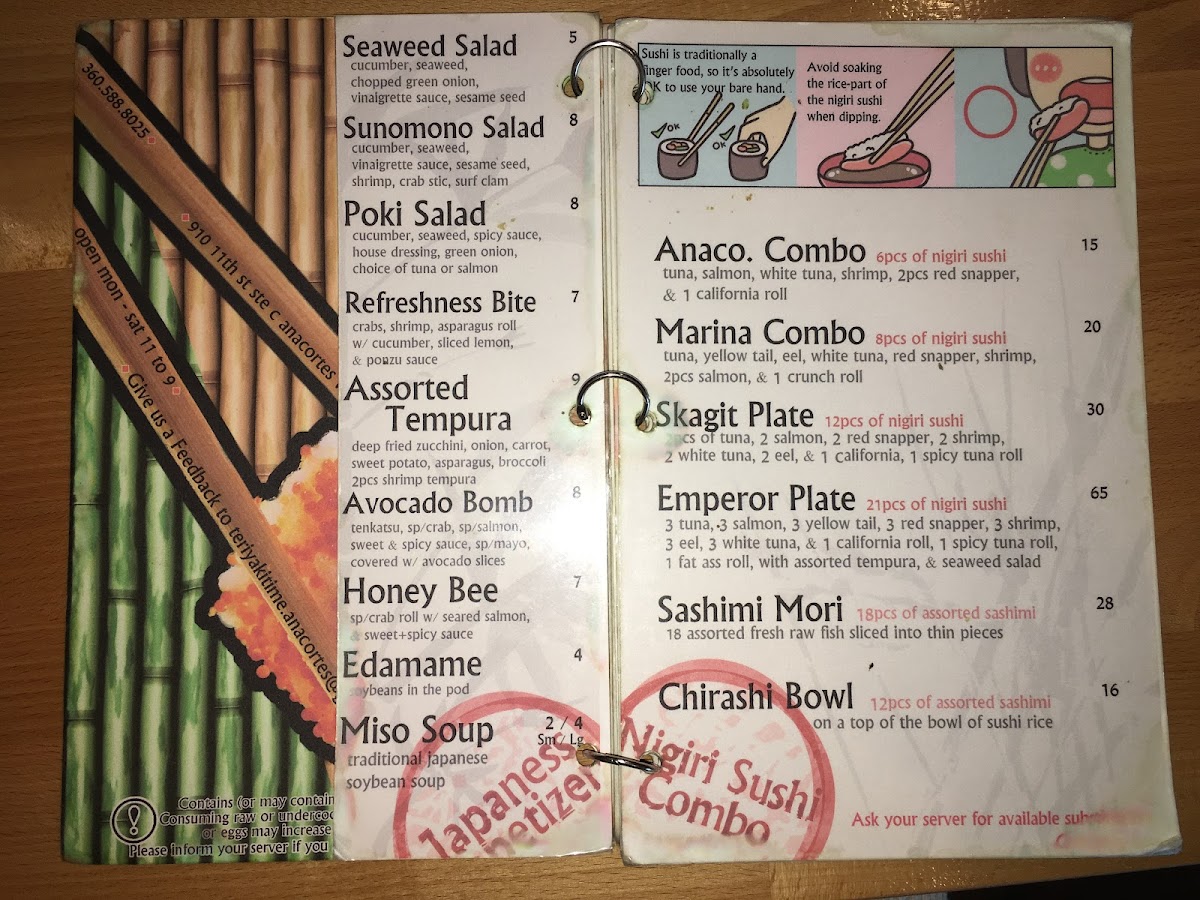 360.588.8025
910 11th st ste c anacortes
open mon - sat 11 to 9
Give us a Feedback to teriyakitime.anacortes@
Contains (or may contain
Consuming raw or
or eggs may increase
Please inform your server if you
Seaweed Salad 5
cucumber, seaweed,
chopped green onion,
vinaigrette sauce, sesame seed
Sunomono Salad 8
cucumber, seaweed,
vinaigrette sauce, sesame seed,
shrimp, crab stic, surf clam
Poki Salad 8
cucumber, seaweed, spicy sauce,
house dressing, green onion,
choice of tuna or salmon
Refreshness Bite 7
crabs, shrimp, asparagus roll
w/ cucumber, sliced lemon,
& ponzu sauce
Assorted 9
Tempura
deep fried zucchini, onion, carrot,
sweet potato, asparagus, broccoli
2pcs shrimp tempura
Avocado Bomb 8
tenkatsu, sp/crab, sp/salmon,
sweet & spicy sauce, sp/mayo,
covered w/ avocado slices
Honey Bee 7
sp/crab roll w/ seared salmon,
& sweet+spicy sauce
Edamame 4
soybeans in the pod
Miso Soup 2 / 4
Sm / Lg
traditional japanese
soybean soup
Japanese
Sushi is traditionally a
finger food, so it's absolutely
OK to use your bare hand.
OK
OK
Avoid soaking
the rice-part of
the nigiri sushi
when dipping.
Anaco. Combo 6pcs of nigiri sushi 15
tuna, salmon, white tuna, shrimp, 2pcs red snapper,
& 1 california roll
Marina Combo 8pcs of nigiri sushi 20
tuna, yellow tail, eel, white tuna, red snapper, shrimp,
2pcs salmon, & 1 crunch roll
Skagit Plate 12pcs of nigiri sushi 30
2pcs of tuna, 2 salmon, 2 red snapper, 2 shrimp,
2 white tuna, 2 eel, & 1 california, 1 spicy tuna roll
Emperor Plate 21pcs of nigiri sushi 65
3 tuna, 3 salmon, 3 yellow tail, 3 red snapper, 3 shrimp,
3 eel, 3 white tuna, & 1 california roll, 1 spicy tuna roll,
1 fat ass roll, with assorted tempura, & seaweed salad
Sashimi Mori 18pcs of assorted sashimi 28
18 assorted fresh raw fish sliced into thin pieces
Chirashi Bowl 12pcs of assorted sashimi 16
on a top of the bowl of sushi rice
Nigiri Sushi
Combo
Ask your server for available